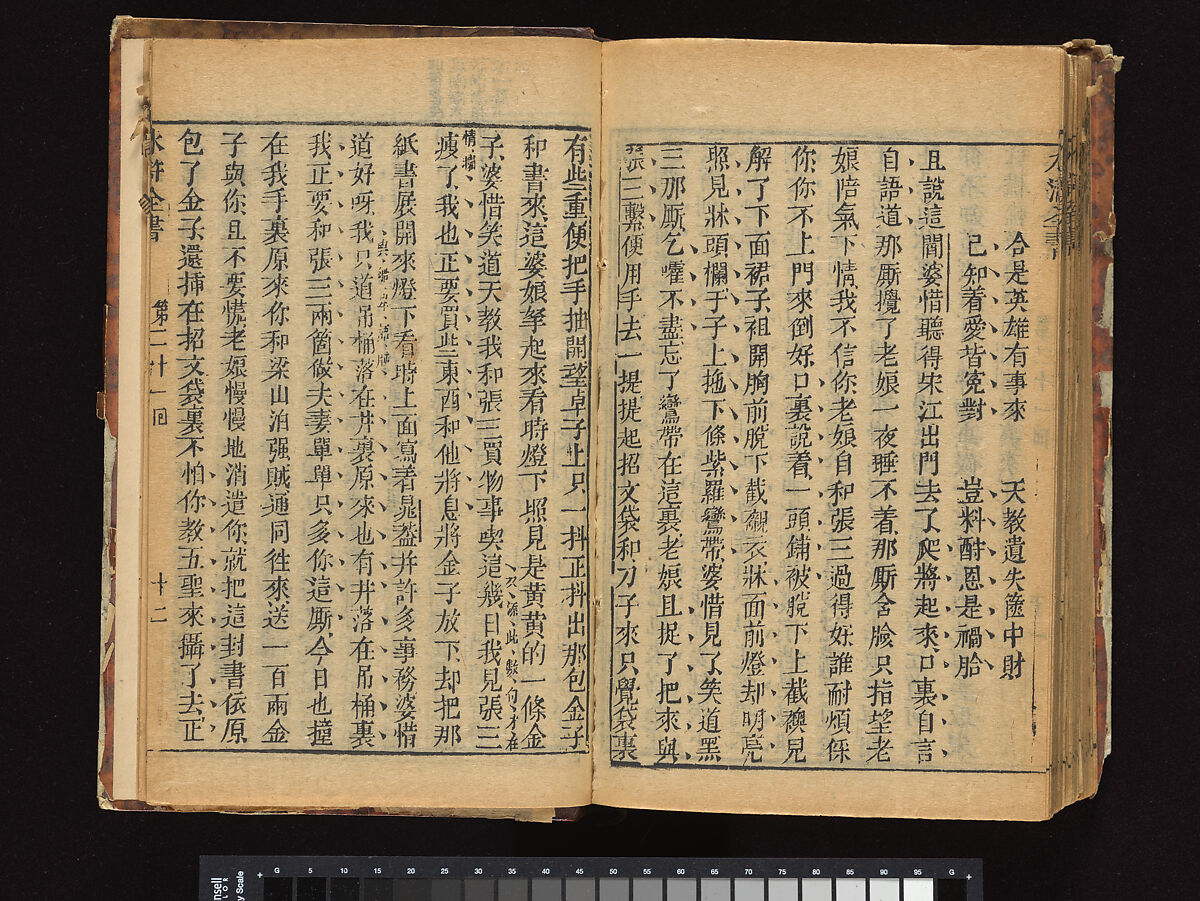 合是英雄有事來　天教遺失篋中財
已知着愛皆冤對　豈料酬恩是禍胎
且說這閻婆惜聽得宋江出門去了爬將起來口裏自言
自語道那厮攪了老娘一夜睡不着那厮含臉只指望老
娘陪氣下情我不信你老娘自和張三過得好誰耐煩保
你你不上門來倒好口裏說着一頭鋪被脫下上截襖兒
解了下面裙子袒開胸前脫下截襯衣牀面前燈却明亮
照見牀頭欄干子上拖下條紫羅鸞帶婆惜見了笑道黑
三那厮乞嚯不盡忘了鸞帶在這裏老娘且捉了把來與
張三繫便用手去一提提起招文袋和刀子來只覺袋裏
有些重便把手抽開望卓子上只一抖正抖出那包金子
和書來這婆娘拏起來看時燈下照見是黃黃的一條金
子婆惜笑道天教我和張三買物事喫這幾日我見張三
瘦了我也正要買些東西和他將息將金子放下却把那
紙書展開來燈下看時上面寫着晁蓋并許多事務婆惜
道好呀我只道吊桶落在井裏原來也有井落在吊桶裏
我正要和張三兩箇做夫妻單單只多你這厮今日也撞
在我手裏原來你和梁山泊强賊通同往來送一百兩金
子與你且不要慌老娘慢慢地消遣你就把這封書依原
包了金子還插在招文袋裏不怕你教五聖來攝了去正
水滸全書
第二十一回
十二